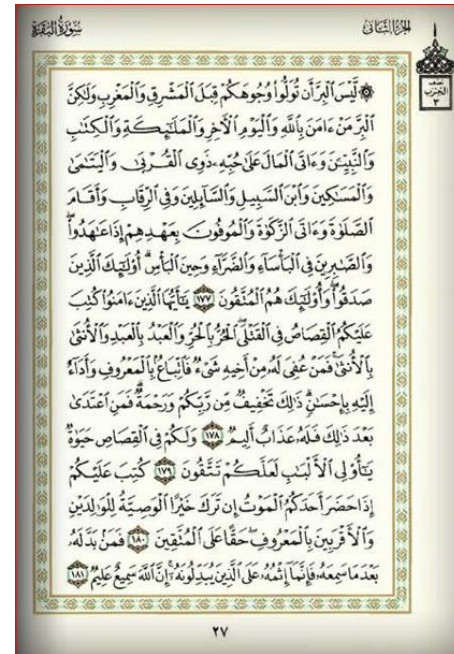 سُورَةُ البَقَرَةِ
الجُزْءُ الثَّانِي
نصف
الحزب
٣
۞ لَّيْسَ ٱلْبِرَّ أَن تُوَلُّوا۟ وُجُوهَكُمْ قِبَلَ ٱلْمَشْرِقِ وَٱلْمَغْرِبِ وَلَـٰكِنَّ
ٱلْبِرَّ مَنْ ءَامَنَ بِٱللَّهِ وَٱلْيَوْمِ ٱلْـَٔاخِرِ وَٱلْمَلَـٰٓئِكَةِ وَٱلْكِتَـٰبِ
وَٱلنَّبِيِّـۧنَ وَءَاتَى ٱلْمَالَ عَلَىٰ حُبِّهِۦ ذَوِى ٱلْقُرْبَىٰ وَٱلْيَتَـٰمَىٰ
وَٱلْمَسَـٰكِينَ وَٱبْنَ ٱلسَّبِيلِ وَٱلسَّآئِلِينَ وَفِى ٱلرِّقَابِ وَأَقَامَ
ٱلصَّلَوٰةَ وَءَاتَى ٱلزَّكَوٰةَ وَٱلْمُوفُونَ بِعَهْدِهِمْ إِذَا عَـٰهَدُوا۟ ۖ
وَٱلصَّـٰبِرِينَ فِى ٱلْبَأْسَآءِ وَٱلضَّرَّآءِ وَحِينَ ٱلْبَأْسِ ۗ أُو۟لَـٰٓئِكَ ٱلَّذِينَ
صَدَقُوا۟ ۖ وَأُو۟لَـٰٓئِكَ هُمُ ٱلْمُتَّقُونَ ١٧٧ يَـٰٓأَيُّهَا ٱلَّذِينَ ءَامَنُوا۟ كُتِبَ
عَلَيْكُمُ ٱلْقِصَاصُ فِى ٱلْقَتْلَى ۖ ٱلْحُرُّ بِٱلْحُرِّ وَٱلْعَبْدُ بِٱلْعَبْدِ وَٱلْأُنثَىٰ
بِٱلْأُنثَىٰ ۚ فَمَنْ عُفِىَ لَهُۥ مِنْ أَخِيهِ شَىْءٌ فَٱتِّبَاعٌۢ بِٱلْمَعْرُوفِ وَأَدَآءٌ
إِلَيْهِ بِإِحْسَـٰنٍ ۗ ذَٰلِكَ تَخْفِيفٌ مِّن رَّبِّكُمْ وَرَحْمَةٌ ۗ فَمَنِ ٱعْتَدَىٰ
بَعْدَ ذَٰلِكَ فَلَهُۥ عَذَابٌ أَلِيمٌ ١٧٨ وَلَكُمْ فِى ٱلْقِصَاصِ حَيَوٰةٌ
يَـٰٓأُو۟لِى ٱلْأَلْبَـٰبِ لَعَلَّكُمْ تَتَّقُونَ ١٧٩ كُتِبَ عَلَيْكُمْ
إِذَا حَضَرَ أَحَدَكُمُ ٱلْمَوْتُ إِن تَرَكَ خَيْرًا ٱلْوَصِيَّةُ لِلْوَٰلِدَيْنِ
وَٱلْأَقْرَبِينَ بِٱلْمَعْرُوفِ ۖ حَقًّا عَلَى ٱلْمُتَّقِينَ ١٨٠ فَمَنۢ بَدَّلَهُۥ
بَعْدَ مَا سَمِعَهُۥ فَإِنَّمَآ إِثْمُهُۥ عَلَى ٱلَّذِينَ يُبَدِّلُونَهُۥٓ ۚ إِنَّ ٱللَّهَ سَمِيعٌ عَلِيمٌ ١٨١
٢٧